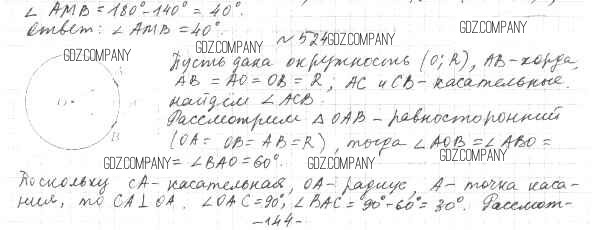 ∠ AMB = 180° - 140° = 40°.
Ответ: ∠ AMB = 40°.
GDZ.COMPANY
№ 524
GDZ.COMPANY
GDZ.COMPANY
GDZ.COMPANY
Пусть дана окружность (O; R), AB - хорда,
AB = AO = OB = R; AC и CB - касательные.
найдём ∠ ACB.
Рассмотрим △ OAB - равносторонний
(OA = OB = AB = R), тогда ∠ AOB = ∠ ABO =
= ∠ BAO = 60°.
GDZ.COMPANY
GDZ.COMPANY
GDZ.COMPANY
Поскольку CA - касательная, OA - радиус, A - точка каса-
ния, то CA ⊥ OA. ∠ OAC = 90°, ∠ BAC = 90° - 60° = 30°. Рассмот-
-144-
O
A
B